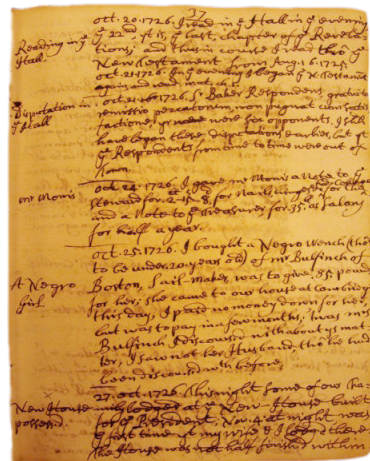 37
oct. 20. 1726. I read in ye Hall in ye evening
Reading in ye Hall.
ye 22d. it is ye last chapter of ye Revela-
tions; and thus in course I read the
New Testament from Aug. 1. 6. 1725.
oct. 21. 1726. In ye evening I began ye N. Testament
again and read mat.
Disputation in ye Hall
oct. 21. 1726. Sr Baker Respondent, gratuita
remissio peccatorum, non pugnat cum satis-
factione, were six opponents. I sld
have begun these disputations earlier, but ye
ye Respondents from time to time were out of
Town.
mr Monis
oct. 24. 1726. I gave mr Monis a Note to ye
Steward for 2-15-8. for
and a Note to ye Treasurer for 35. as Salary
for half a year.
oct. 25. 1726. I bought a Negro Wench (tho't
to be under 20 years old) of mr Bulfinch of
A Negro Girl.
Boston, Sail-maker, was to give 85 pound
for her; she came to our house at Cambridge
this day, I paid no money down for her,
but was to pay in a few months; twas mrs
Bulfinch I discoursed with about ys mat-
ter, I saw not her Husband, tho he had
been discoursed with before.
27. oct. 1726. This night some of our fa-
New House possess'd.
mily lodged at ye New-House built
for ye President; Nov. 4. at night was
ye first time yt my wife & I lodged there.
the House was not half finished within